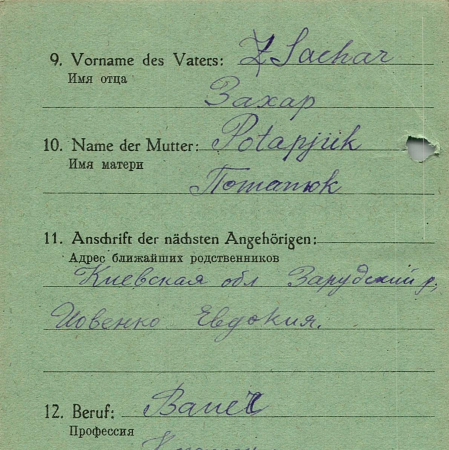 9. Vorname des Vaters: Sachar
Имя отца
Захар
10. Name der Mutter: Potapjuk
Имя матери
Потапюк
11. Anschrift der nächsten Angehörigen:
Адрес ближайших родственников
Киевская обл Зарудский р,
Иовенко Евдокия.
12. Beruf: Bauer
Профессия